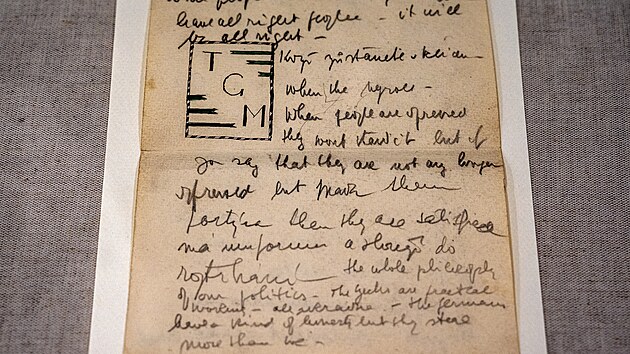 have all right people - it will
be all right -
T
G
M
Když zůstanete klidn
when the negroes -
When people are opressed
they wont stand it but if
you say that they are not any longer
opressed but make them
then they are satisfied
má uniformu a do
the whole philosophy
of our politics - the are practical
- all ukraine - the Germans
have a kind of honesty but they steal
more than we -